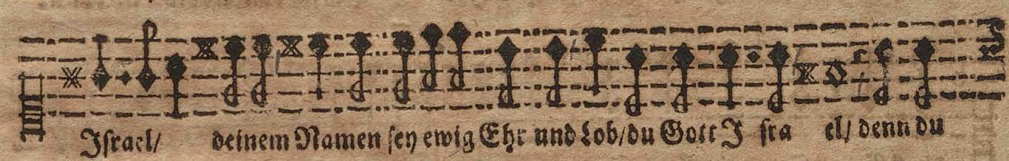 Iſrael/ deinem Namen ſey ewig Ehr und Lob/du Gott I ſra el/ denn du